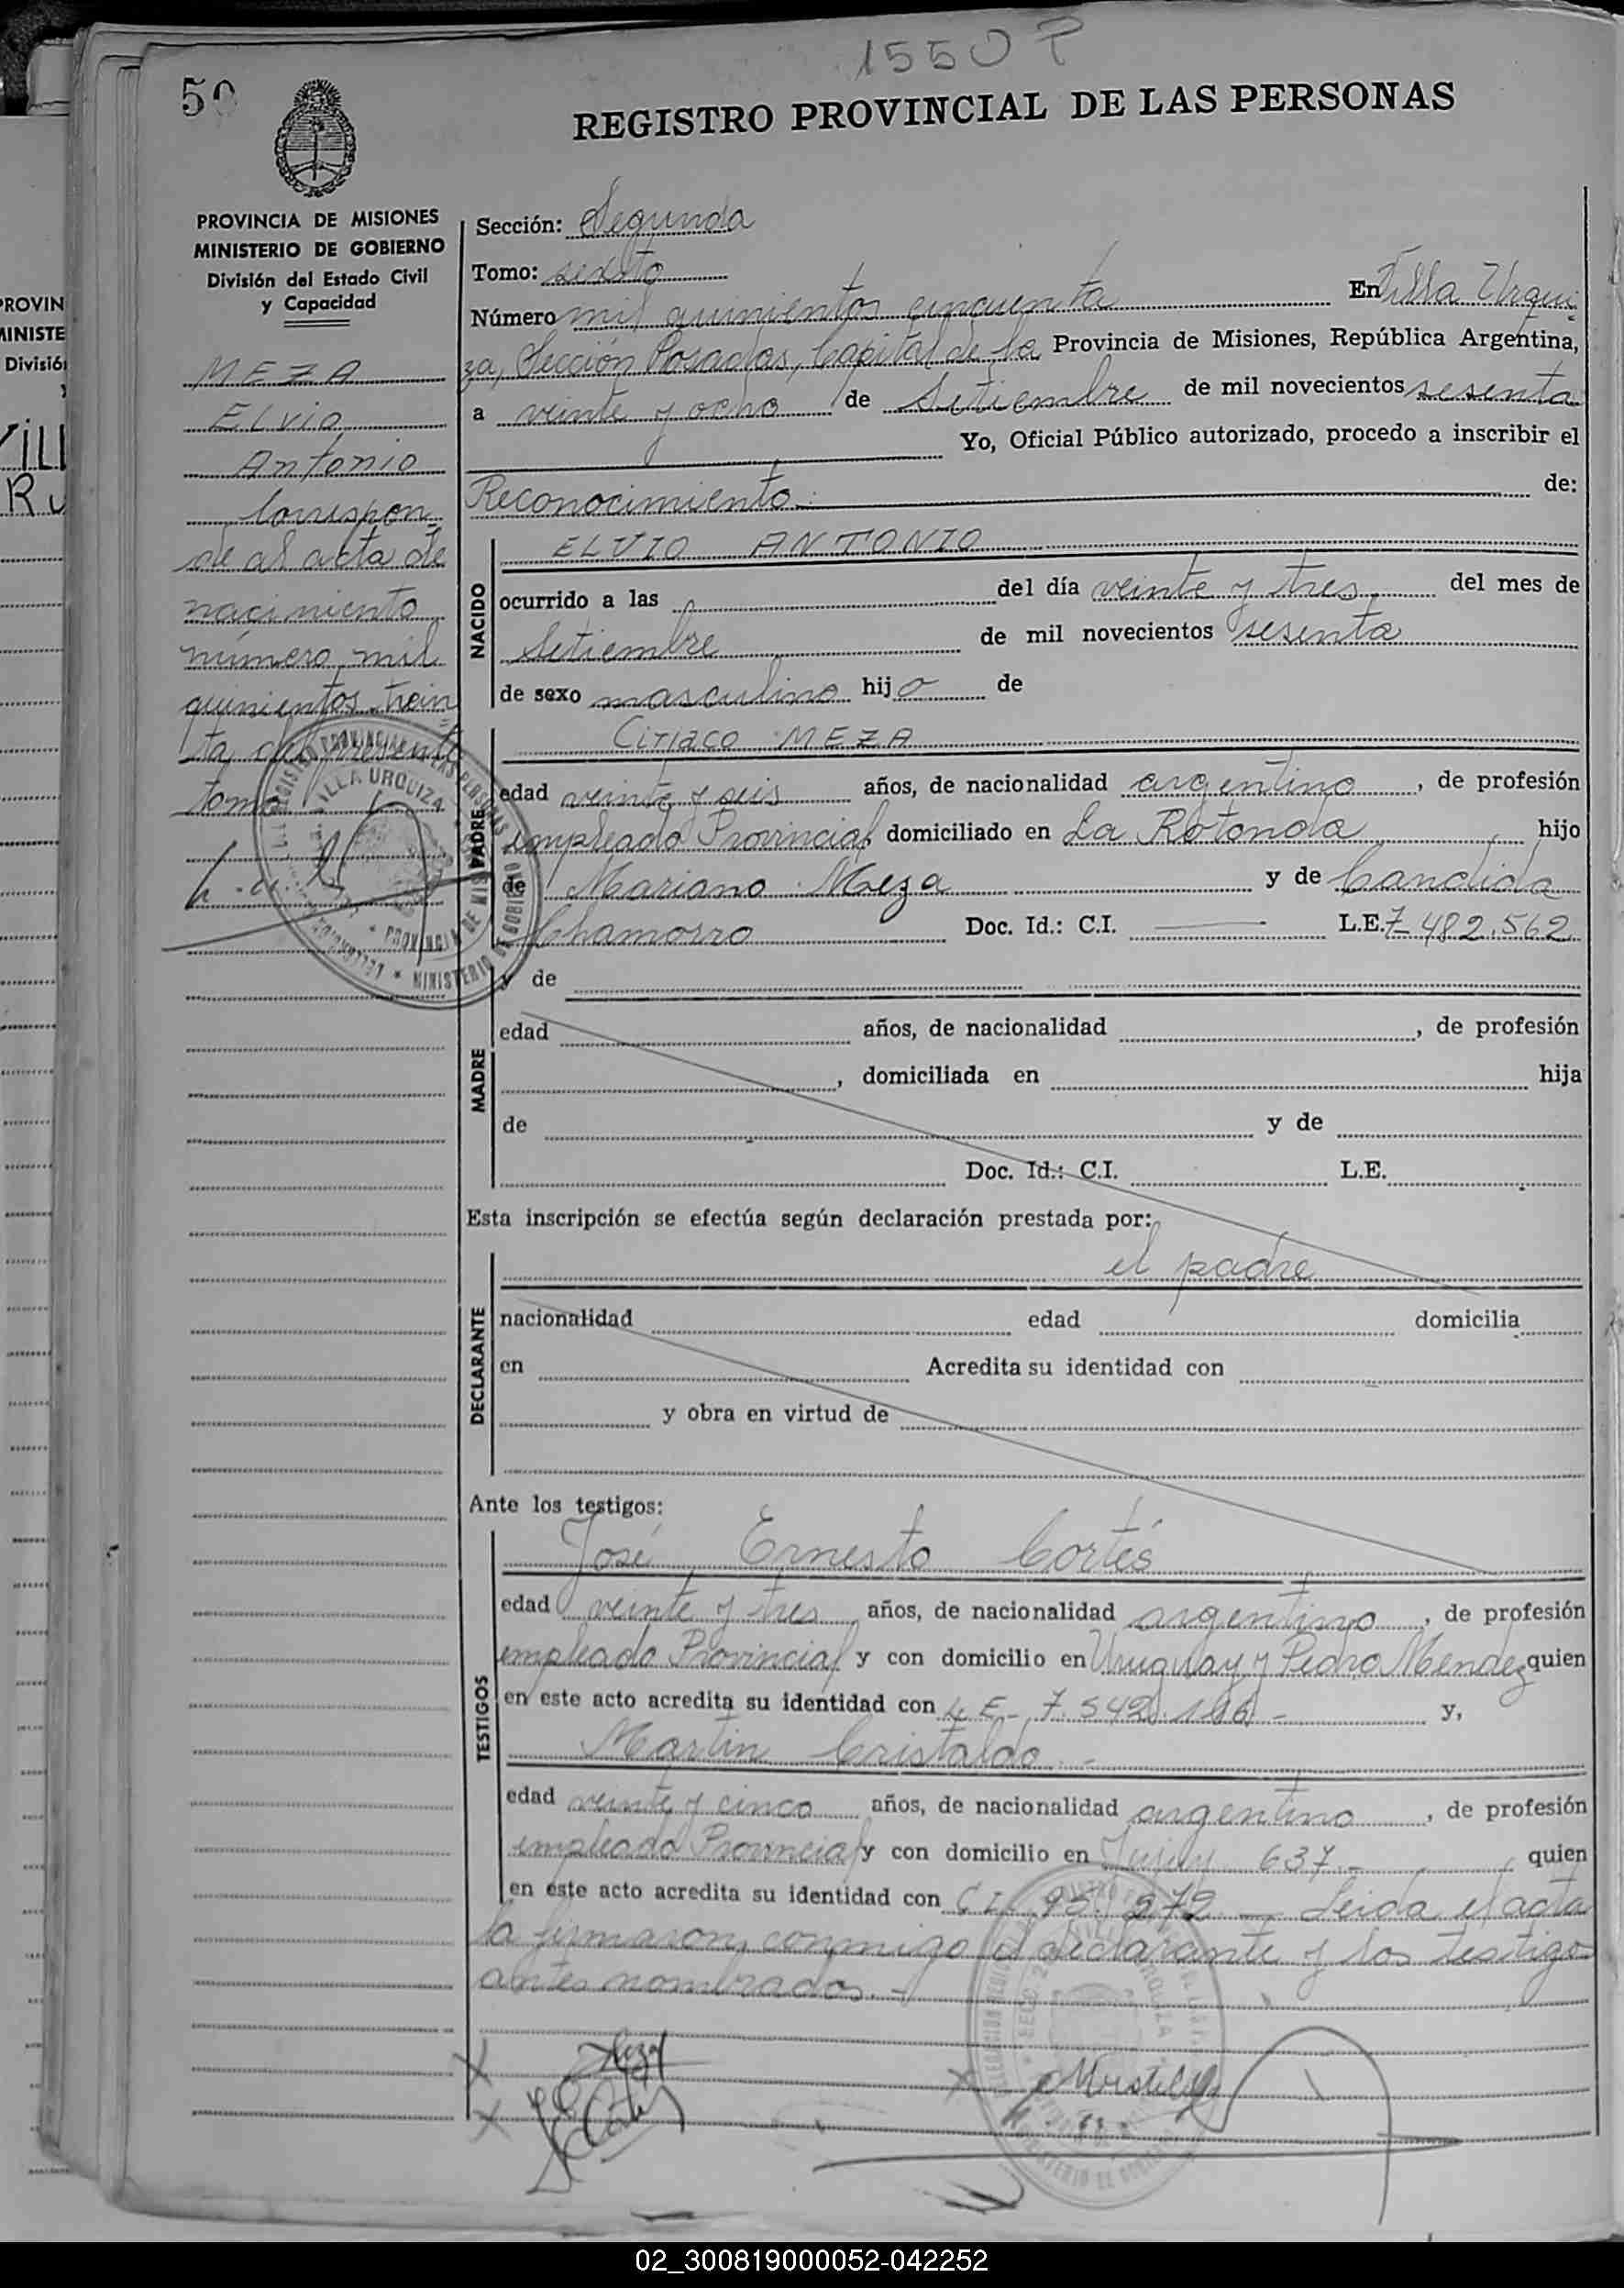 1550 P
50
REGISTRO PROVINCIAL DE LAS PERSONAS
PROVINCIA DE MISIONES
MINISTERIO DE GOBIERNO
División del Estado Civil
y Capacidad
MEZA
ELVIO
Antonio
Correspon
de al acta de
nacimiento
número mil
quinientos trein
ta del presente
tomo
Sección: Segunda
Tomo: sexto
Número mil quinientos cincuenta En Villa Urqui
za, Sección Posadas, Capital de la Provincia de Misiones, República Argentina,
a veinte y ocho de Setiembre de mil novecientos sesenta
Yo, Oficial Público autorizado, procedo a inscribir el
Reconocimiento de:
NACIDO
ELVIO ANTONIO
ocurrido a las del día veinte y tres del mes de
Setiembre de mil novecientos sesenta
de sexo masculino hijo de
PADRE
Ciriaco MEZA
edad veinte y seis años, de nacionalidad argentino, de profesión
empleado Provincial domiciliado en La Rotonda hijo
de Mariano Meza y de Candida
Chamorro Doc. Id.: C.I. — L.E. 7.482.562
MADRE
y de
edad años, de nacionalidad , de profesión
, domiciliada en hija
de y de
Doc. Id.: C.I. L.E.
Esta inscripción se efectúa según declaración prestada por:
DECLARANTE
el padre
nacionalidad edad domicilia
en Acredita su identidad con
y obra en virtud de
Ante los testigos:
TESTIGOS
José Ernesto Cortés
edad veinte y tres años, de nacionalidad argentino, de profesión
empleado Provincial y con domicilio en Uruguay y Pedro Mendez quien
en este acto acredita su identidad con L.E. 7.542. y,
Martin Cristaldo.-
edad veinte y cinco años, de nacionalidad argentino, de profesión
empleado Provincial y con domicilio en Jujuy 637.- quien
en este acto acredita su identidad con C.I. 95. 272.- Leida el acta
la firmaron conmigo el declarante y los testigos
antes nombrados.-
VILLA URQUIZA
PROVINCIA DE MISIONES
MINISTERIO DE GOBIERNO
Meza
Cortés
02_300819000052-042252
PROVIN
MINISTE
Divisió
VILL
RU